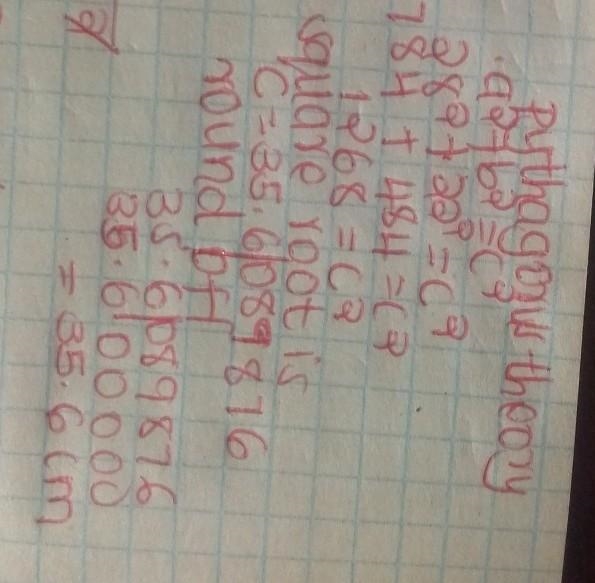 pythagorus theory
a2+b2=c2
282+222=c2
784+484=c2
1268=c2
square root is
c=35.6|089876
round off
35.6|089876
35.6|00000
=35.6cm